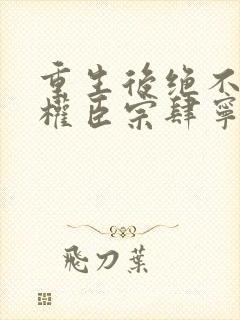 重生後绝不
權臣宗肆寧
飛刀葉